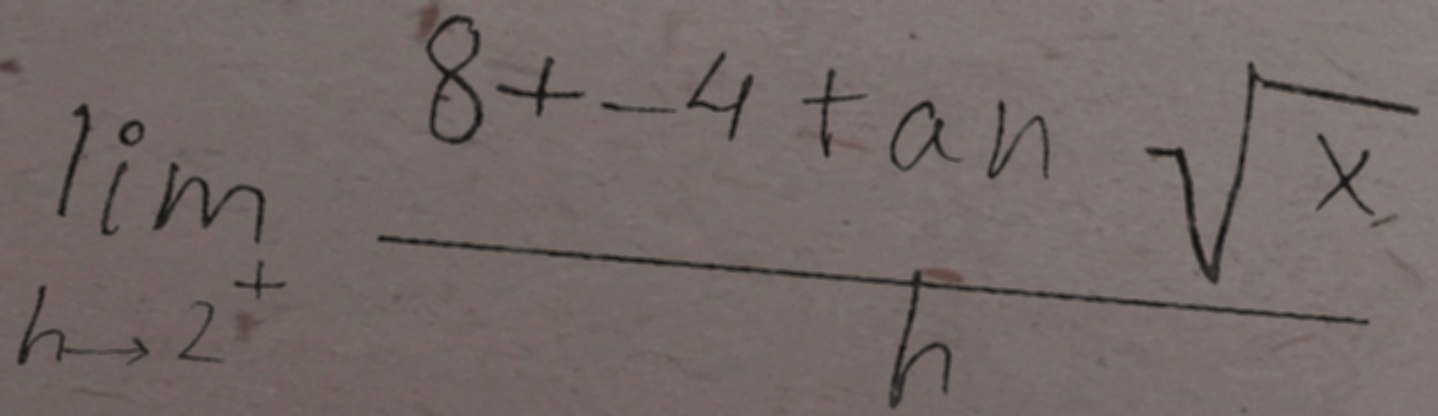 \lim_{h \to 2^+} \frac{8 + -4 \tan \sqrt{x}}{h}